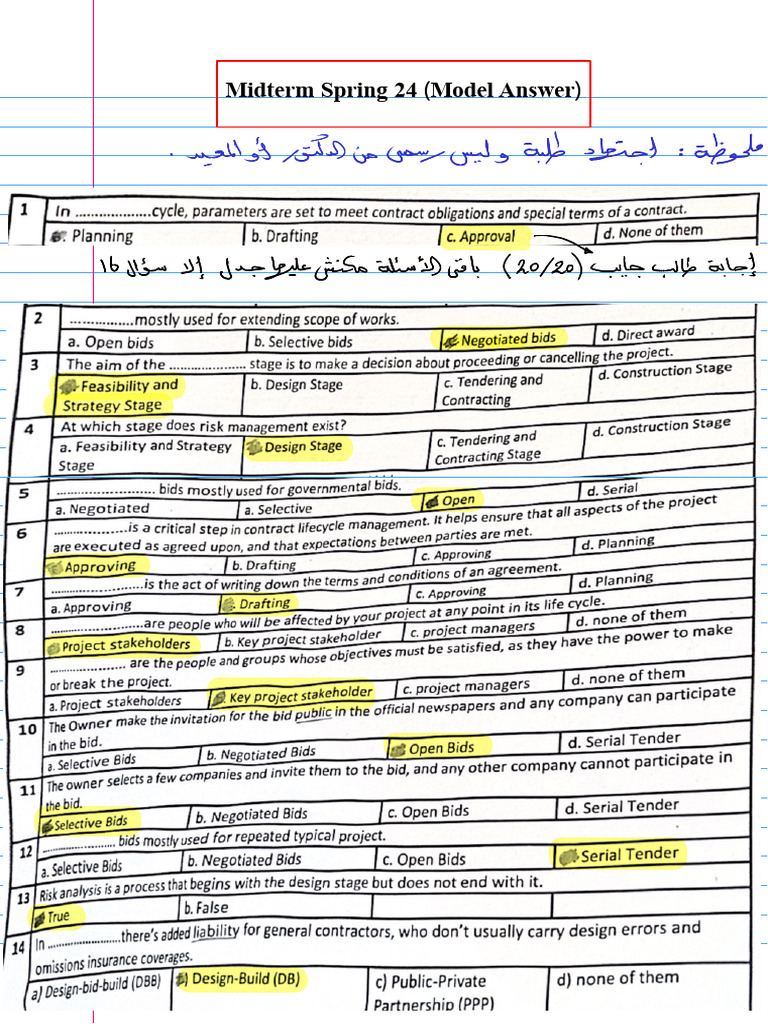 Midterm Spring 24 (Model Answer)
ملحوظة : اجتهاد طلبة وليس رسمى من الدكتور أو المعيد .
1 In ...................cycle, parameters are set to meet contract obligations and special terms of a contract.
Planning b. Drafting c. Approval d. None of them
إجابة طالب جايب (20/20) باقى الأسئلة مكنش عليها جدل إلا سؤال 16
2 ................mostly used for extending scope of works.
a. Open bids b. Selective bids Negotiated bids d. Direct award
3 The aim of the ................... stage is to make a decision about proceeding or cancelling the project.
Feasibility and b. Design Stage c. Tendering and d. Construction Stage
Strategy Stage Contracting
4 At which stage does risk management exist?
a. Feasibility and Strategy Design Stage c. Tendering and d. Construction Stage
Stage Contracting Stage
5 ......................... bids mostly used for governmental bids.
a. Negotiated a. Selective Open d. Serial
6 ...................is a critical step in contract lifecycle management. It helps ensure that all aspects of the project
are executed as agreed upon, and that expectations between parties are met.
Approving b. Drafting c. Approving d. Planning
7 ........................is the act of writing down the terms and conditions of an agreement.
a. Approving Drafting c. Approving d. Planning
8 ........................are people who will be affected by your project at any point in its life cycle.
Project stakeholders b. Key project stakeholder c. project managers d. none of them
9 ................... are the people and groups whose objectives must be satisfied, as they have the power to make
or break the project.
a. Project stakeholders Key project stakeholder c. project managers d. none of them
10 The Owner make the invitation for the bid public in the official newspapers and any company can participate
in the bid.
a. Selective Bids b. Negotiated Bids Open Bids d. Serial Tender
11 The owner selects a few companies and invite them to the bid, and any other company cannot participate in
the bid.
Selective Bids b. Negotiated Bids c. Open Bids d. Serial Tender
12 ................... bids mostly used for repeated typical project.
a. Selective Bids b. Negotiated Bids c. Open Bids Serial Tender
13 Risk analysis is a process that begins with the design stage but does not end with it.
True b. False
14 In ...................there's added liability for general contractors, who don't usually carry design errors and
omissions insurance coverages.
a) Design-bid-build (DBB) ) Design-Build (DB) c) Public-Private d) none of them
Partnership (PPP)